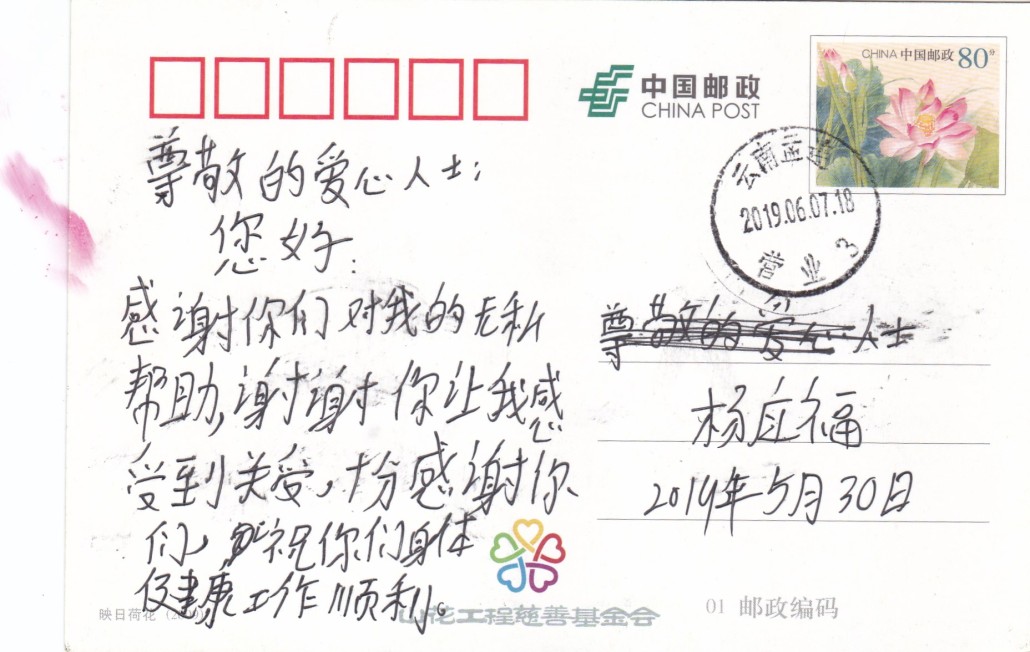 中国邮政
CHINA POST
CHINA 中国邮政 80分
云南
2019.06.07.18
营业 3
尊敬的爱心人士：
您好：
感谢你们对我的无私
帮助，谢谢你让我感
受到关受，十分感谢你
们，祝你们身体
健康工作顺利。
尊敬的爱心人士
杨应福
2019年5月30日
映日荷花
山花工程慈善基金会
01 邮政编码